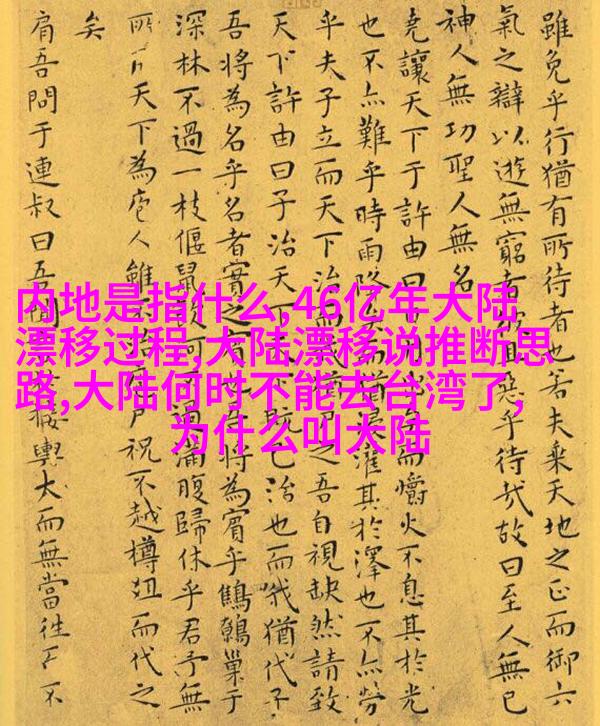 雖免乎行猶有所待者也若夫乘天地之正而御六
氣之辯以遊無窮者惡乎待哉故曰至人無己
神人無功聖人無名
堯讓天下于許由曰而爝火不息其於光
也不亦難乎時雨降猶浸灌其於澤也不亦勞
乎夫子立而天下治之吾自視缺然請致
天下許由曰子治天下既已治也而我猶代子
吾將為名乎名者實之吾將為賓乎鷦鷯巢于
深林不過一枝偃鼠飲河不過滿腹歸休乎君予無
所用天下為庖人雖不治庖尸祝不越樽俎而代之
矣
肩吾問于連叔曰吾聞接輿大而無當往而不
内地是指什么,46亿年大陆
漂移过程,大陆漂移说推断思
路,大陆何时不能去台湾了,
为什么叫大陆